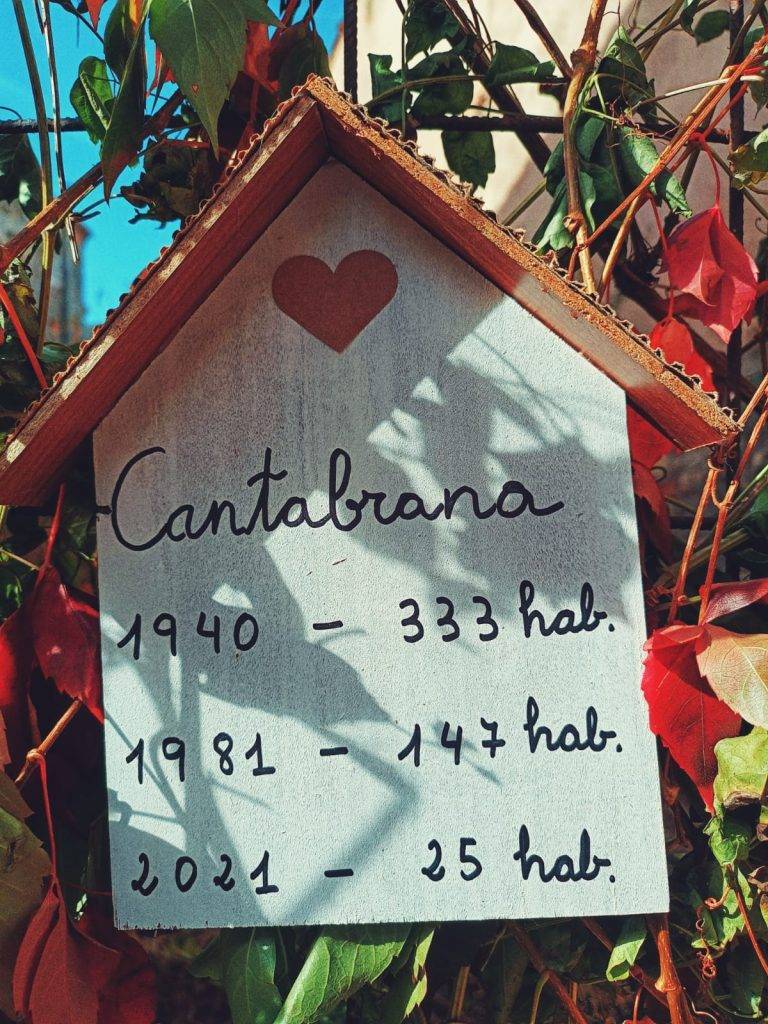 Cantabrana
1940 - 333 hab.
1981 - 147 hab.
2021 - 25 hab.